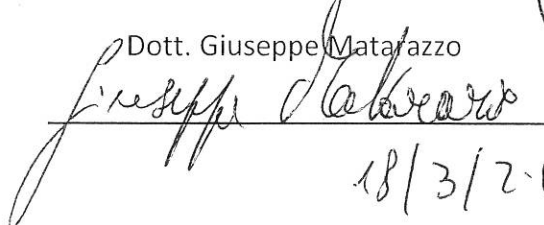 Dott. Giuseppe Matarazzo
Giuseppe Matarazzo
18/3/2